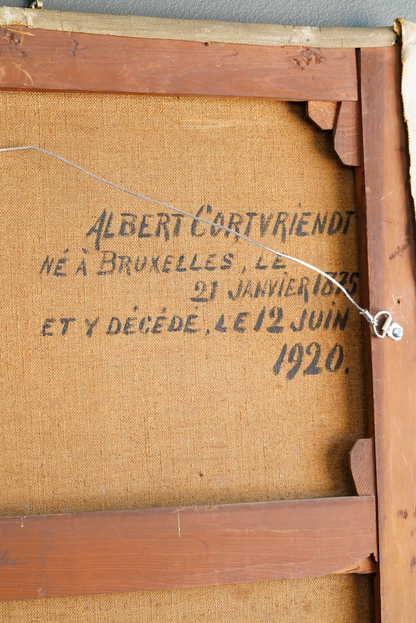 ALBERT CORTVRIENDT
NÉ À BRUXELLES, LE
21 JANVIER 1875
ET Y DÉCÉDÉ, LE 12 JUIN
1920.